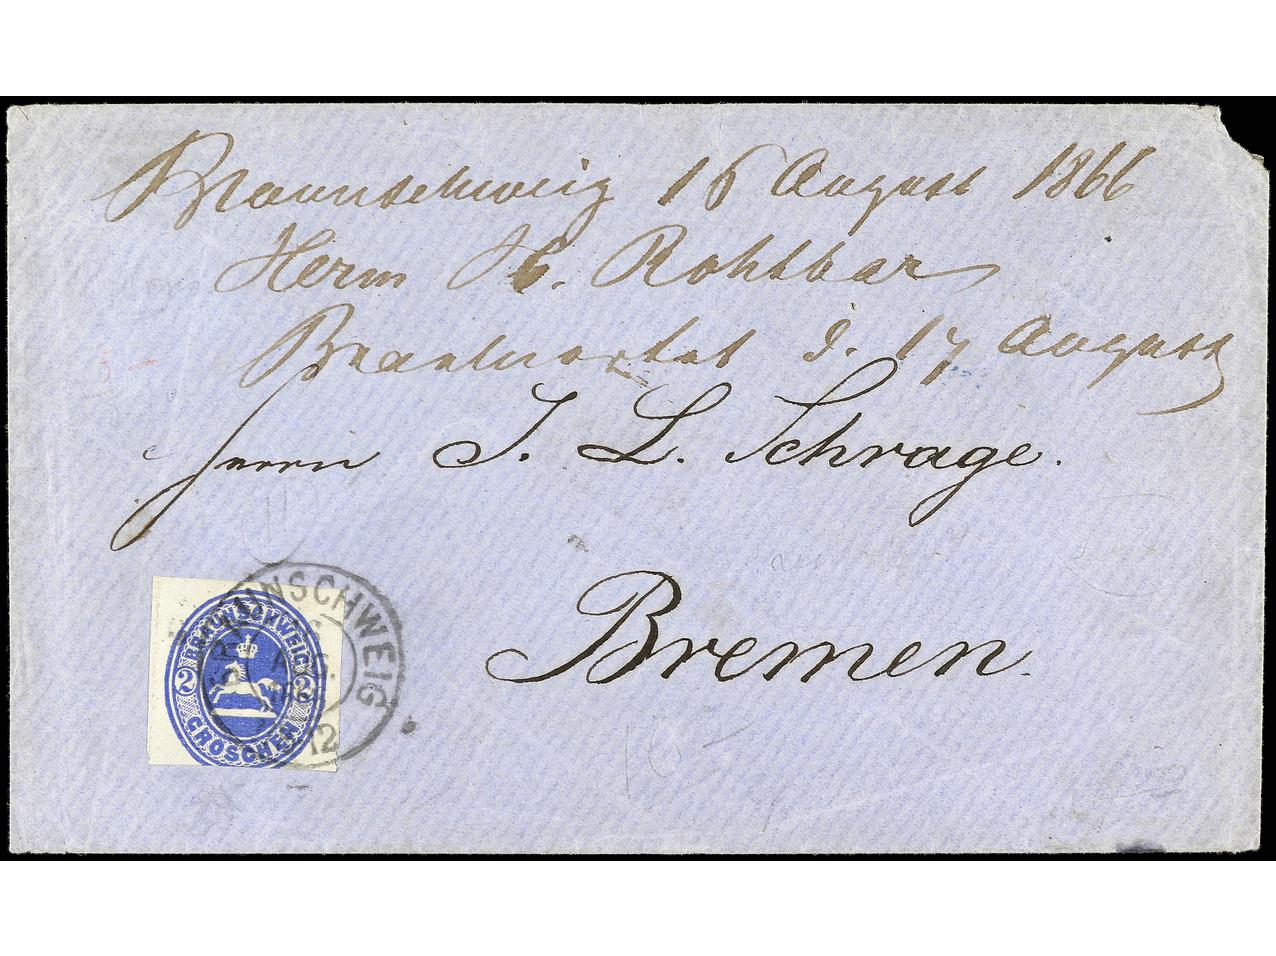 Braunschweig 16 August 1866
Herrn H. Rohtbar
Beantwortet d. 17 August
Herrn J. L. Schrage.
Bremen.
BRAUNSCHWEIG
2 2
GROSCHEN
BRAUNSCHWEIG
AUG.
12